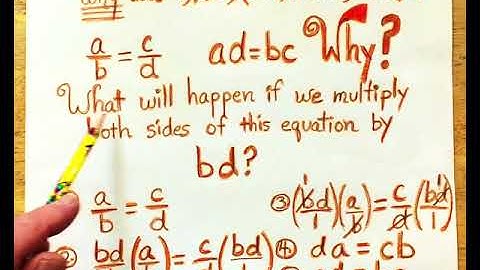 why
a/b = c/d ad=bc Why?
What will happen if we multiply
both sides of this equation by
bd?
a/b = c/d
③ (bd/1)(a/b) = c/d (bd/1)
2. bd/1 (a/b) = c/d (bd/1)
④ da = cb